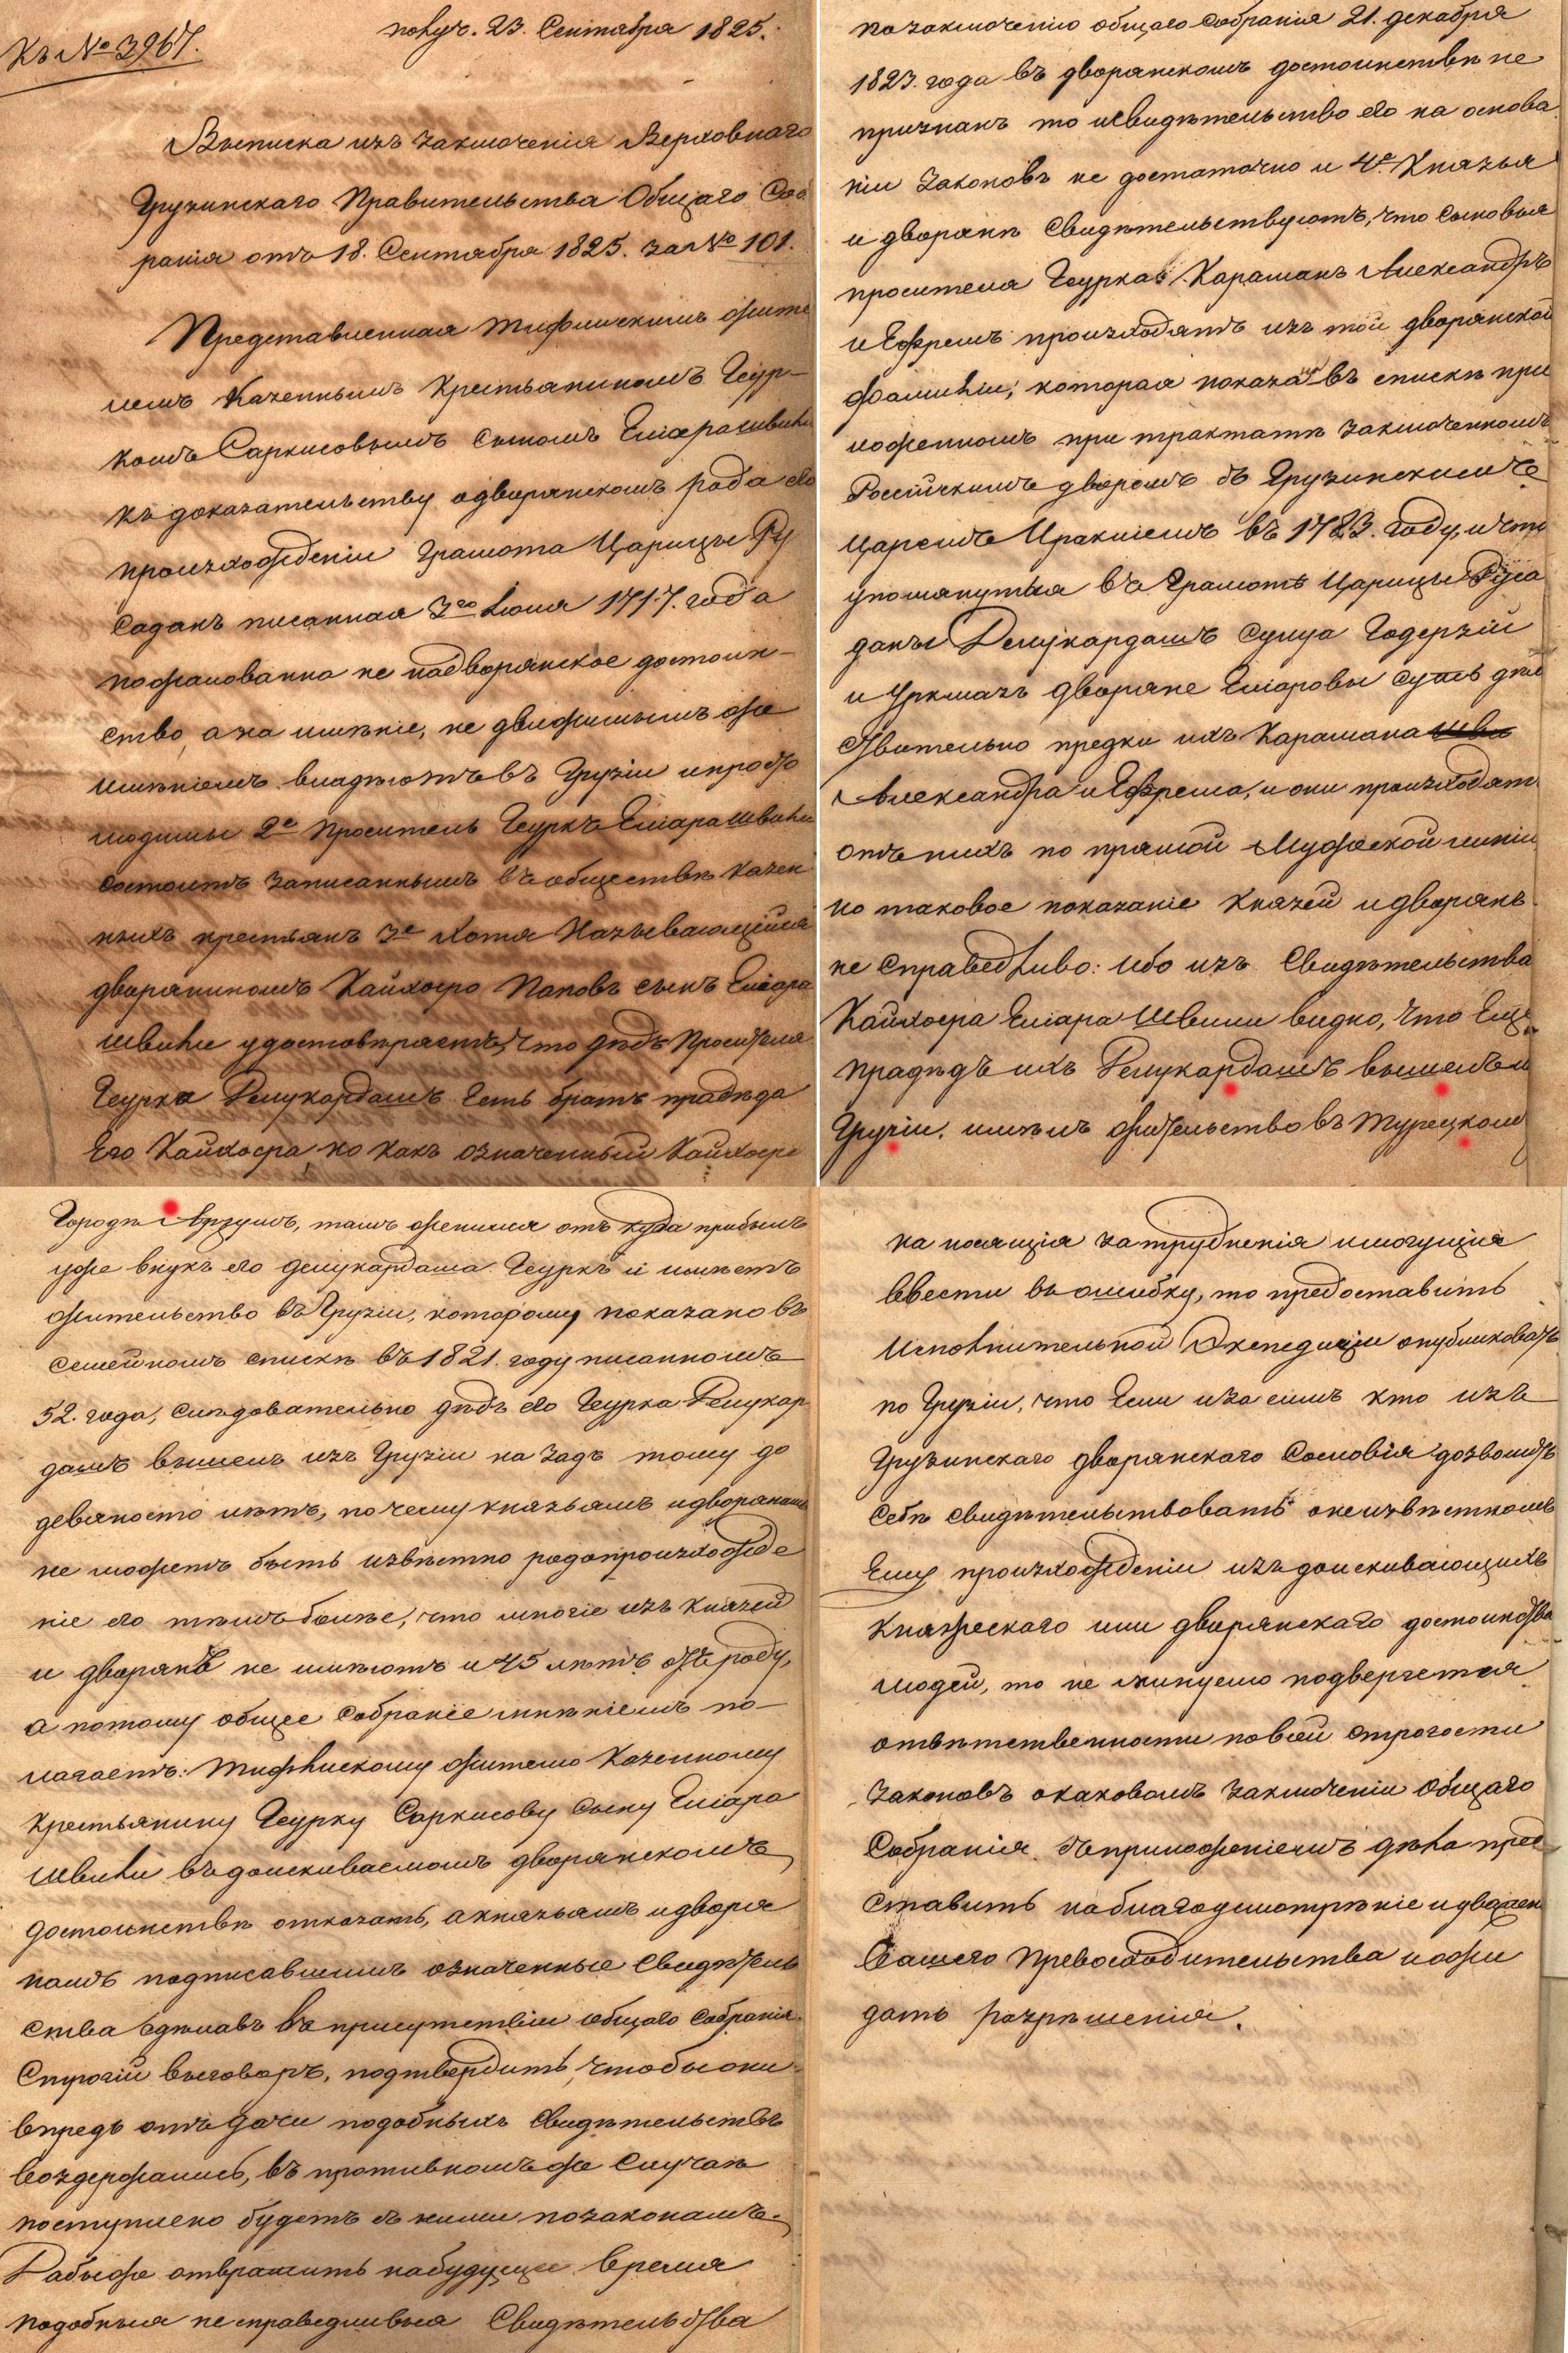 Къ № 3967.
получ. 23. Сентября 1825.
Выписка изъ заключенія Верховнаго
Грузинскаго Правительства Общаго Соб
ранія отъ 18. Сентября 1825. за № 101.
Представленная Тифлискимъ жите
лемъ Казеннымъ Крестьяниномъ Геур-
комъ Саркисовымъ сыномъ Еліарашвили
къ доказательству одворянскомъ рода его
произхожденіи Грамота Царицы Ру
саданъ писанная 3го Іюня 1717. года
пожалованна не надворянское достоин-
ство, а на имѣніе, не движимымъ же
имѣніемъ владѣютъ въ Грузіи и просто
людины 2е Проситель Геуркъ Еліарашвили
состоитъ записаннымъ въ обществѣ казен
ныхъ крестьянъ 3е Хотя Называющійся
дворяниномъ Кайхосро Паповъ сынъ Еліара
швили удостовѣряетъ, что дѣдъ Просителя
Геурка Демукардашъ Есть братъ прадѣда
Его Кайхосра, но какъ означенный Кайхосро
по заключенію общаго собранія 21. декабря
1823. года въ дворянскомъ достоинствѣ не
признанъ то исвидѣтельство его на основа
ніи Законовъ не достаточно и 4е Князья
и дворянѣ свидѣтельствуютъ, что сыновья
просителя Геурка Карашанъ Александръ
и Ефремъ произходятъ изъ той дворянской
фамиліи, которая показана въ спискѣ при
ложенномъ при трактатѣ заключенномъ
Россійскимъ дворомъ съ Грузинскимъ
Царемъ Иракліемъ въ 1783. году, и что
упомянутыя въ Грамотѣ Царицы Руса
даны Демукардашъ Сулуа Годерзій
и Уркмазъ дворяне Еліаровы суть дѣй
ствительно предки ихъ Карашана
Александра и Ефрема, и они произходятъ
отъ нихъ по прямой Мужеской линіи
но таковое показаніе князей и дворянъ
не справедливо: ибо изъ Свидѣтельства
Кайхосра Еліара Швили видно, что Еще
прадѣдъ ихъ Демукардашъ вышелъ изъ
Грузіи, имѣлъ жительство въ Турецкомъ
Городѣ Арзумъ, тамъ женился отъ куда прибылъ
уже внукъ его демукардаша Геуркъ и имѣетъ
жительство въ Грузіи, которому показано въ
семейномъ спискѣ въ 1821. году писанномъ
52. года, слѣдовательно дѣдъ его Геурка Демукар
дашъ вышелъ изъ Грузіи на задъ тому до
девяносто лѣтъ, по чему князьямъ идворянамъ
не можетъ быть извѣстно родопроизхожде
ніе его тѣмъ болѣе, что многіе изъ князей
и дворянъ не имѣютъ и 45 лѣтъ отъ роду,
а потому общее собраніе мнѣніемъ по-
лагаетъ: Тифлискому жителю Казенному
крестьянину Геурку Саркисову сыну Еліара
швили въ доискиваемомъ дворянскомъ
достоинствѣ отказать, а князьямъ идворя
намъ подписавшимъ означенные свидѣтель
ства сдѣлавъ въ присутствіи общаго собранія
строгій выговоръ, подтвердить, чтобы они
впредь отъ дачи подобныхъ свидѣтельствъ
воздержались, въ противномъ же случаѣ
поступлено будетъ съ ними по законамъ.
Дабы же отвратить на будущее время
подобныя не справедливыя Свидѣтельства
на носящія затрудненія имогущія
ввести въ ошибку, то предоставить
Исполнительной Экспедиціи опубликовать
по Грузіи, что Если и за симъ кто изъ
Грузинскаго дворянскаго Сословія дозволитъ
себѣ свидѣтельствовать онеизвѣстномъ
Ему произхожденіи изъ доискивающихъ
княжескаго или дворянскаго достоинства
людей, то не минуемо подвергнется
отвѣтственности повсей строгости
законовъ окаковомъ заключеніи Общаго
Собранія съ приложеніемъ дѣла пред
ставить на благоусмотрѣніе
Вашего Превосходительства и ожи
дать разрѣшенія.